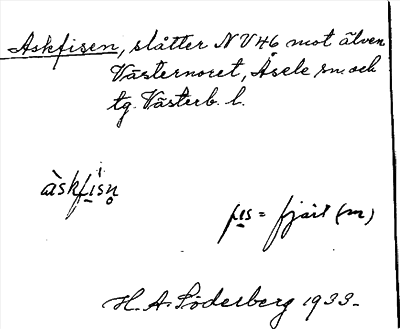 Askfisen, slåtter NV46 mot älven
Västernoret, Åsele sn. och
tg. Västerb. l.
àskfisn̥
fis = fjärt (m)
H. A. Söderberg 1933.